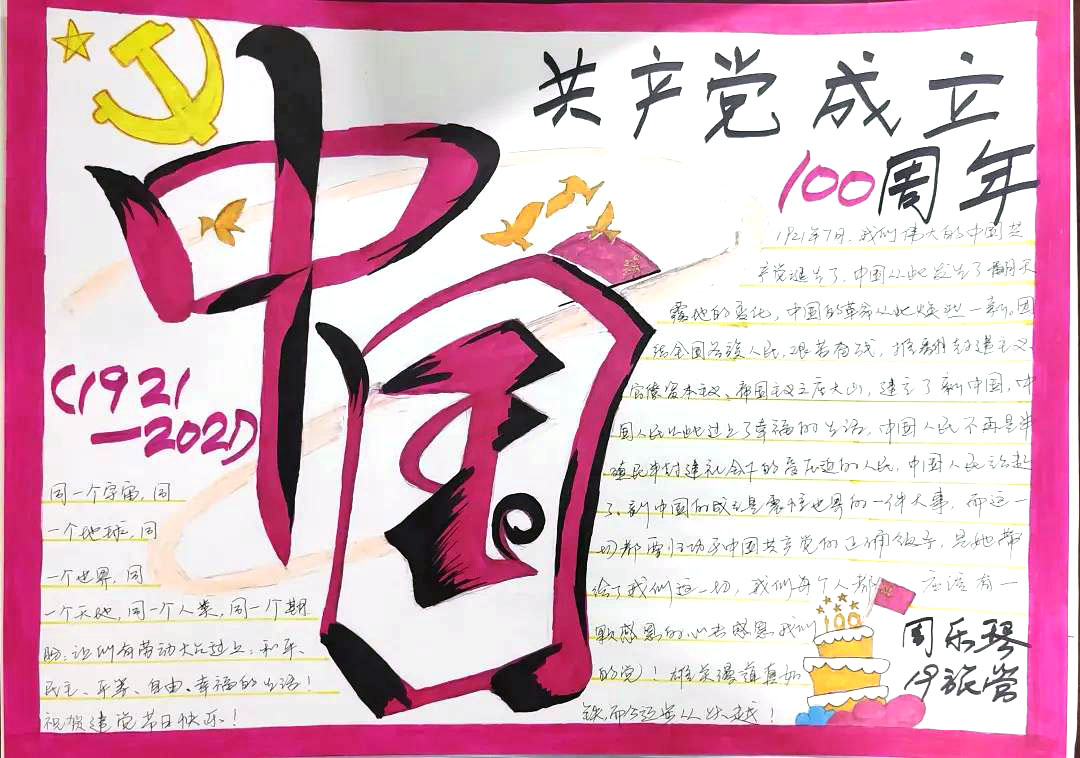 中国
共产党成立
100周年
(1921
—2021)
1921年7月,我们伟大的中国共
产党诞生了,中国从此发生了翻天
覆地的变化,中国的革命从此焕然一新,团
结全国各族人民,艰苦奋战,推翻封建主义、
官僚资本主义、帝国主义三座大山,建立了新中国,中
国人民从此过上了幸福的生活,中国人民不再是半
殖民半封建社会下的受压迫的人民,中国人民站起
了,新中国的成立是震撼世界的一件大事,而这一
切都要归功于中国共产党的正确领导,是她带
给了我们这一切,我们每个人都应该有一
颗感恩的心去感恩我们
的党!雄关漫道真如
铁,而今迈步从头越!
同一个宇宙,同
一个地球,同
一个世界,同
一个天地,同一个人类,同一个期
盼:让所有劳动人民过上:和平、
民主、平等、自由、幸福的生活!
祝贺建党节日快乐!
100
周乐琴
19旅管